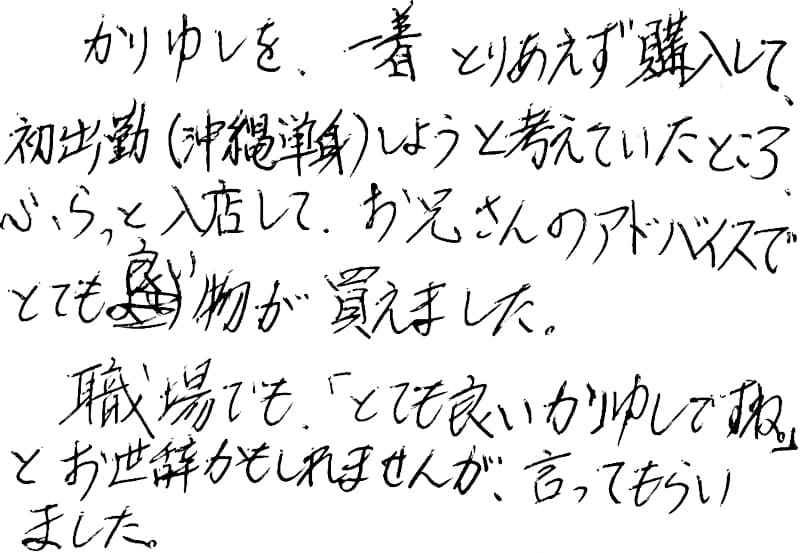 かりゆしを、一着とりあえず購入して、
初出勤(沖縄単身)しようと考えていたところ、
ぶらっと入店して、お兄さんのアドバイスで
とても良い物が買えました。
職場でも、「とても良いかりゆしですね。」
とお世辞かもしれませんが、言ってもらい
ました。